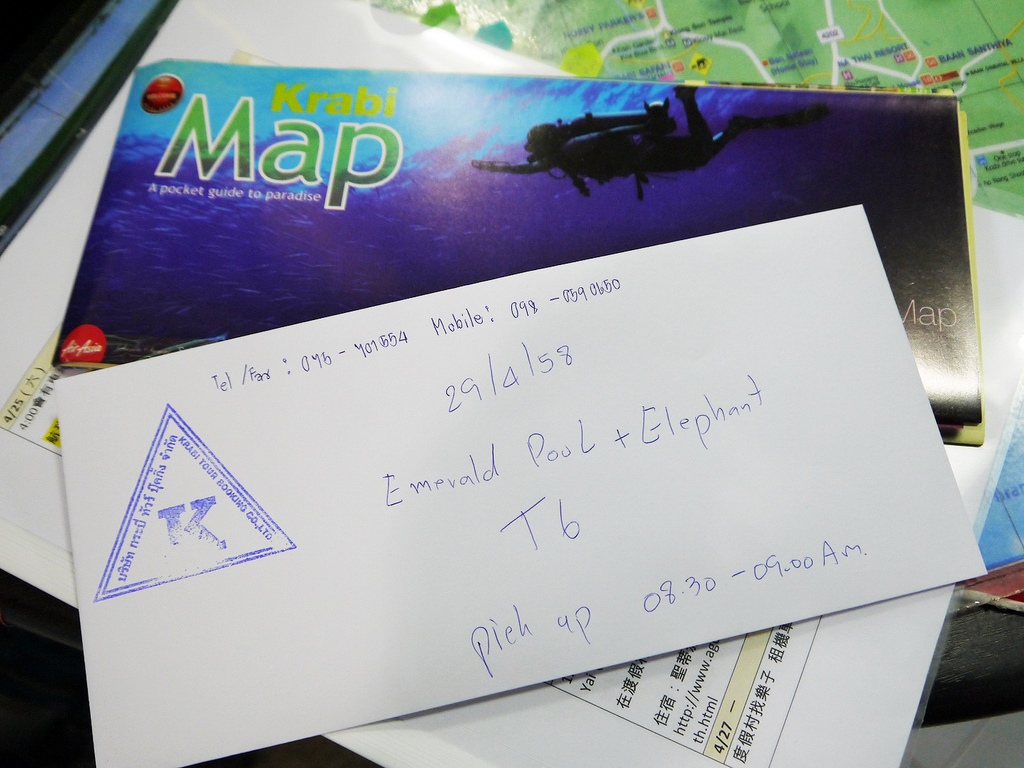 HOBBY PARKER'S
4202
NA THAI RESORT
BAAN SANTHIYA
Krabi
Map
A pocket guide to paradise
Map
AirAsia
Tel /Fax : 075 - 701554 Mobile: 098 - 0590650
29/4/58
Emerald Pool + Elephant
T6
pick up 08.30 - 09.00 Am.
บริษัท กระบี่ ทัวร์ บุ๊คกิ้ง จำกัด
KRABI TOUR BOOKING CO.,LTD.
K
4/25 (六)
4:00會有
在渡假
住宿：聖蒂
http://www.ag
th.html
4/27 一
度假村找樂子 租機車